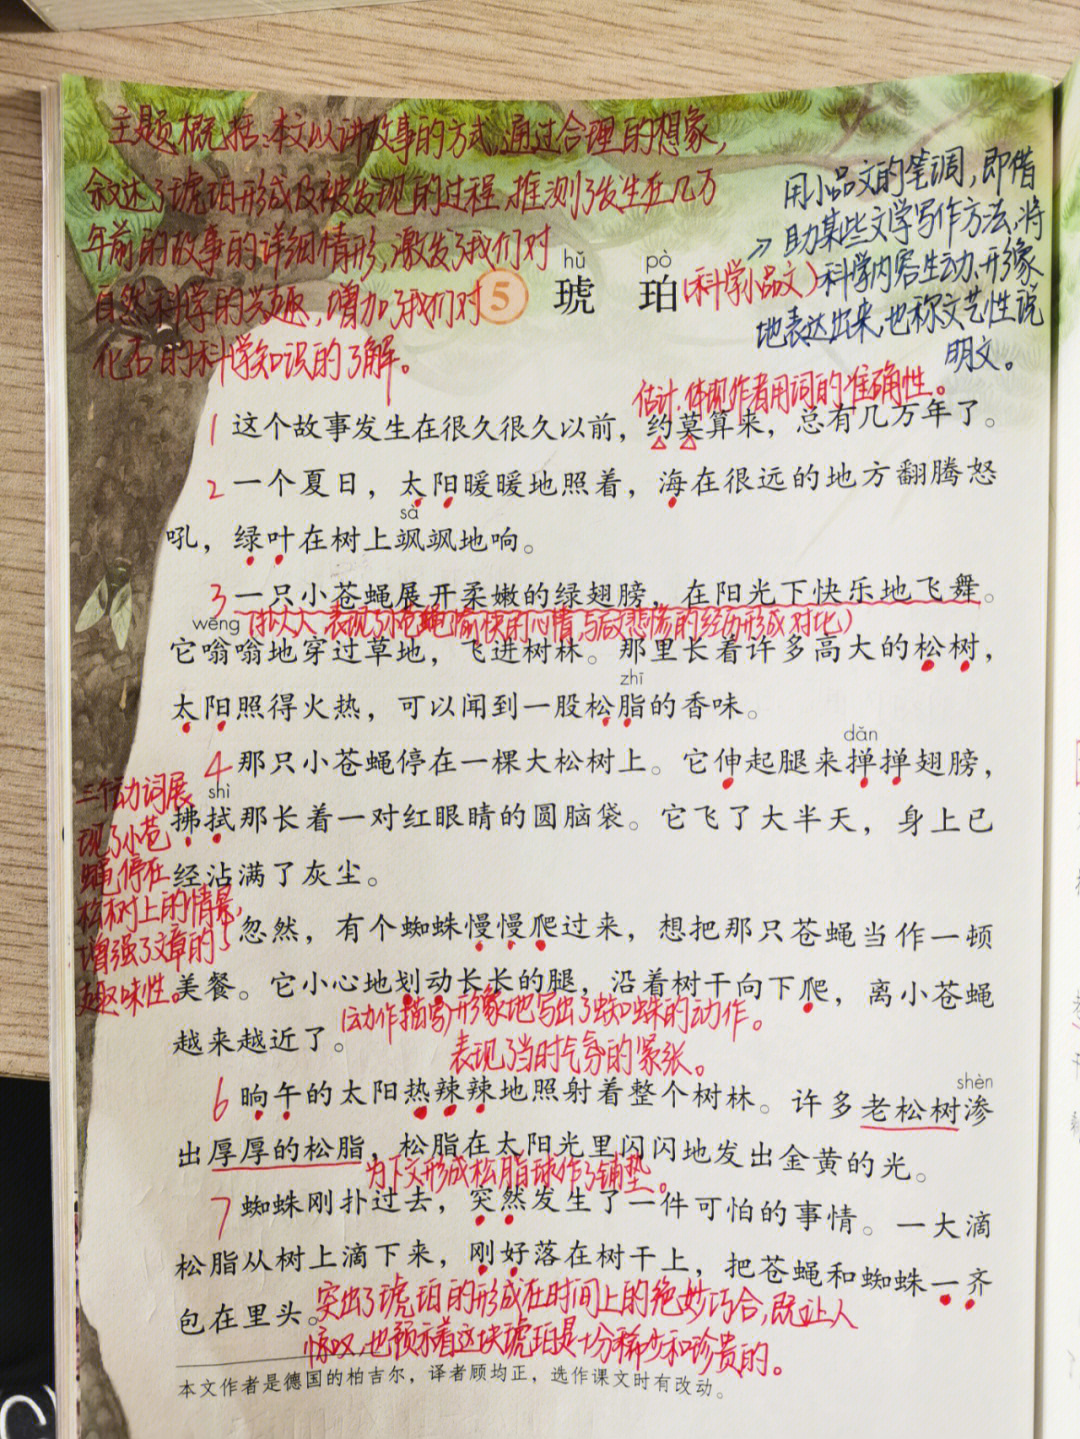 主题概括:本文以讲故事的方式,通过合理的想象,
叙述了琥珀形成及被发现的过程,推测了发生在几万
年前的故事的详细情形,激发了我们对
自然科学的兴趣,增加了我们对
化石的科学知识的了解。
用小品文的笔调,即借
助某些文学写作方法,将
科学内容生动、形象
地表达出来,也称文艺性说
明文。
hǔ pò
5 琥 珀(科学小品文)
估计.体现作者用词的准确性。
1 这个故事发生在很久很久以前,约莫算来,总有几万年了。
2 一个夏日,太阳暖暖地照着,海在很远的地方翻腾怒
sà
吼,绿叶在树上飒飒地响。
3 一只小苍蝇展开柔嫩的绿翅膀,在阳光下快乐地飞舞。
(拟人,表现了小苍蝇愉快的心情,与后文悲惨的经历形成对比)
wēng
它嗡嗡地穿过草地,飞进树林。那里长着许多高大的松树,
zhī
太阳照得火热,可以闻到一股松脂的香味。
dǎn
4 那只小苍蝇停在一棵大松树上。它伸起腿来掸掸翅膀,
shì
拂拭那长着一对红眼睛的圆脑袋。它飞了大半天,身上已
经沾满了灰尘。
三个动词展
现了小苍
蝇停在
松树上的情景,
增强了文章的
趣味性。
5 忽然,有个蜘蛛慢慢爬过来,想把那只苍蝇当作一顿
美餐。它小心地划动长长的腿,沿着树干向下爬,离小苍蝇
越来越近了。
(动作描写)形象地写出了蜘蛛的动作。
表现了当时气氛的紧张。
6 晌午的太阳热辣辣地照射着整个树林。许多老松树渗
shèn
出厚厚的松脂,松脂在太阳光里闪闪地发出金黄的光。
为下文形成松脂球作了铺垫。
7 蜘蛛刚扑过去,突然发生了一件可怕的事情。一大滴
松脂从树上滴下来,刚好落在树干上,把苍蝇和蜘蛛一齐
包在里头。
突出了琥珀的形成在时间上的绝妙巧合,既让人
惊叹,也预示着这块琥珀是十分稀少和珍贵的。
本文作者是德国的柏吉尔,译者顾均正,选作课文时有改动。